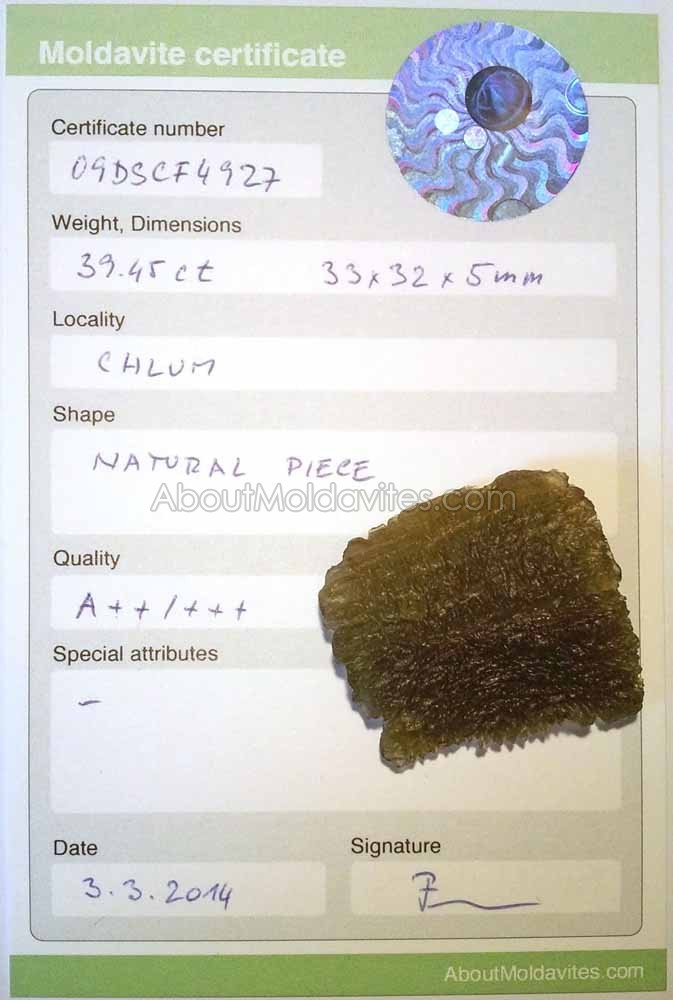 Moldavite certificate
Certificate number
09DSCF4927
Weight, Dimensions
39.45 ct 33 x 32 x 5 mm
Locality
CHLUM
Shape
NATURAL PIECE
AboutMoldavites.com
Quality
A++/+++
Special attributes
-
Date
Signature
3.3.2014
AboutMoldavites.com